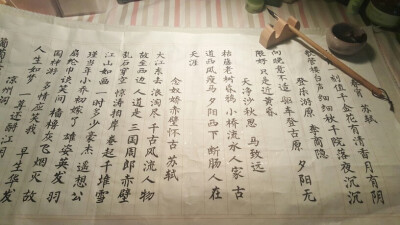 春宵 苏轼
刻值千金花有清香月有阴
歌管楼台声细细秋千院落夜沉沉
登乐游原 李商隐
向晚意不适 驱车登古原 夕阳无
限好 只是近黄昏
天净沙秋思 马致远
枯藤老树昏鸦 小桥流水人家 古
道西风瘦马 夕阳西下 断肠人在
天涯
念奴娇赤壁怀古 苏轼
大江东去 浪淘尽 千古风流人物
故垒西边 人道是 三国周郎赤壁
乱石穿空 惊涛拍岸 卷起千堆雪
江山如画 一时多少豪杰 遥想公
瑾当年 小乔初嫁了 雄姿英发 羽
扇纶巾 谈笑间 樯橹灰飞烟灭 故
国神游 多情应笑我 早生华发
人生如梦 一尊还酹江月
凉州词
葡萄美